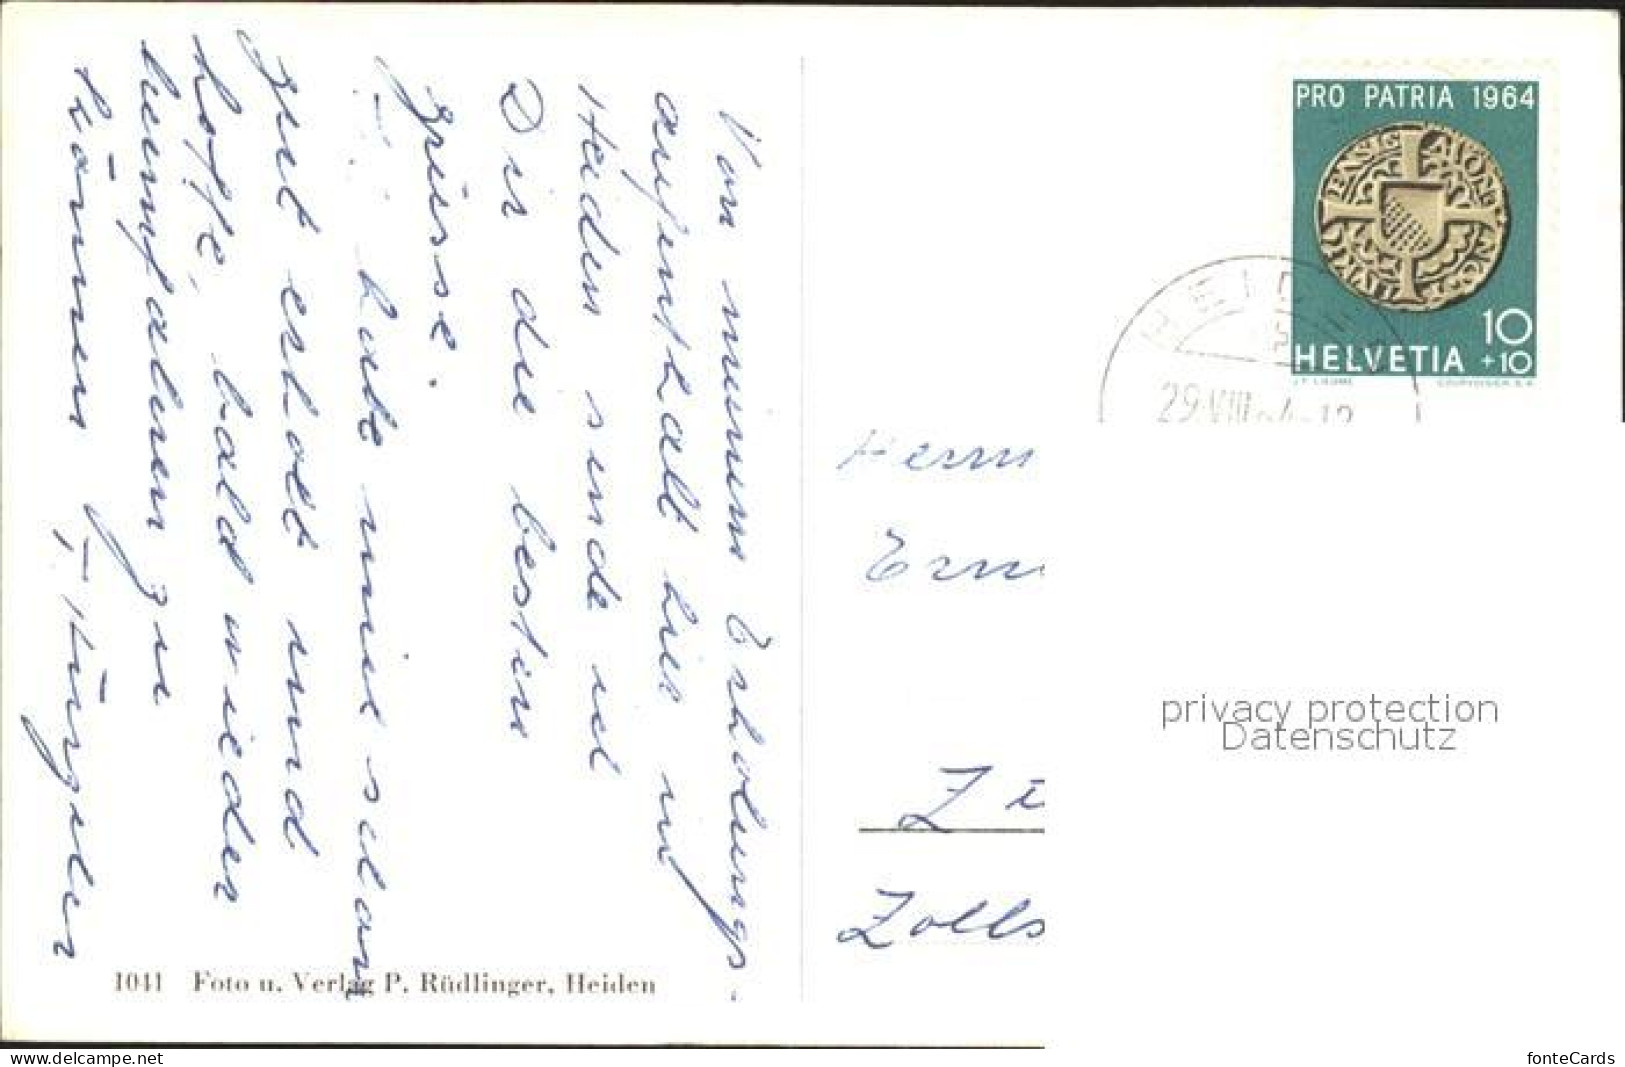 Von meinem Erholungs-
aufenthalt hier in
Heiden sende ich
Dir die besten
Grüsse.
habe mich schon
gut erholt und
hoffe, bald wieder
heimfahren zu
können
1041 Foto u. Verlag P. Rüdlinger, Heiden
PRO PATRIA 1964
10
HELVETIA +10
HEIDEN
29.VIII.64-12
Herrn
Zolls
privacy protection
Datenschutz
www.delcampe.net
fonteCards